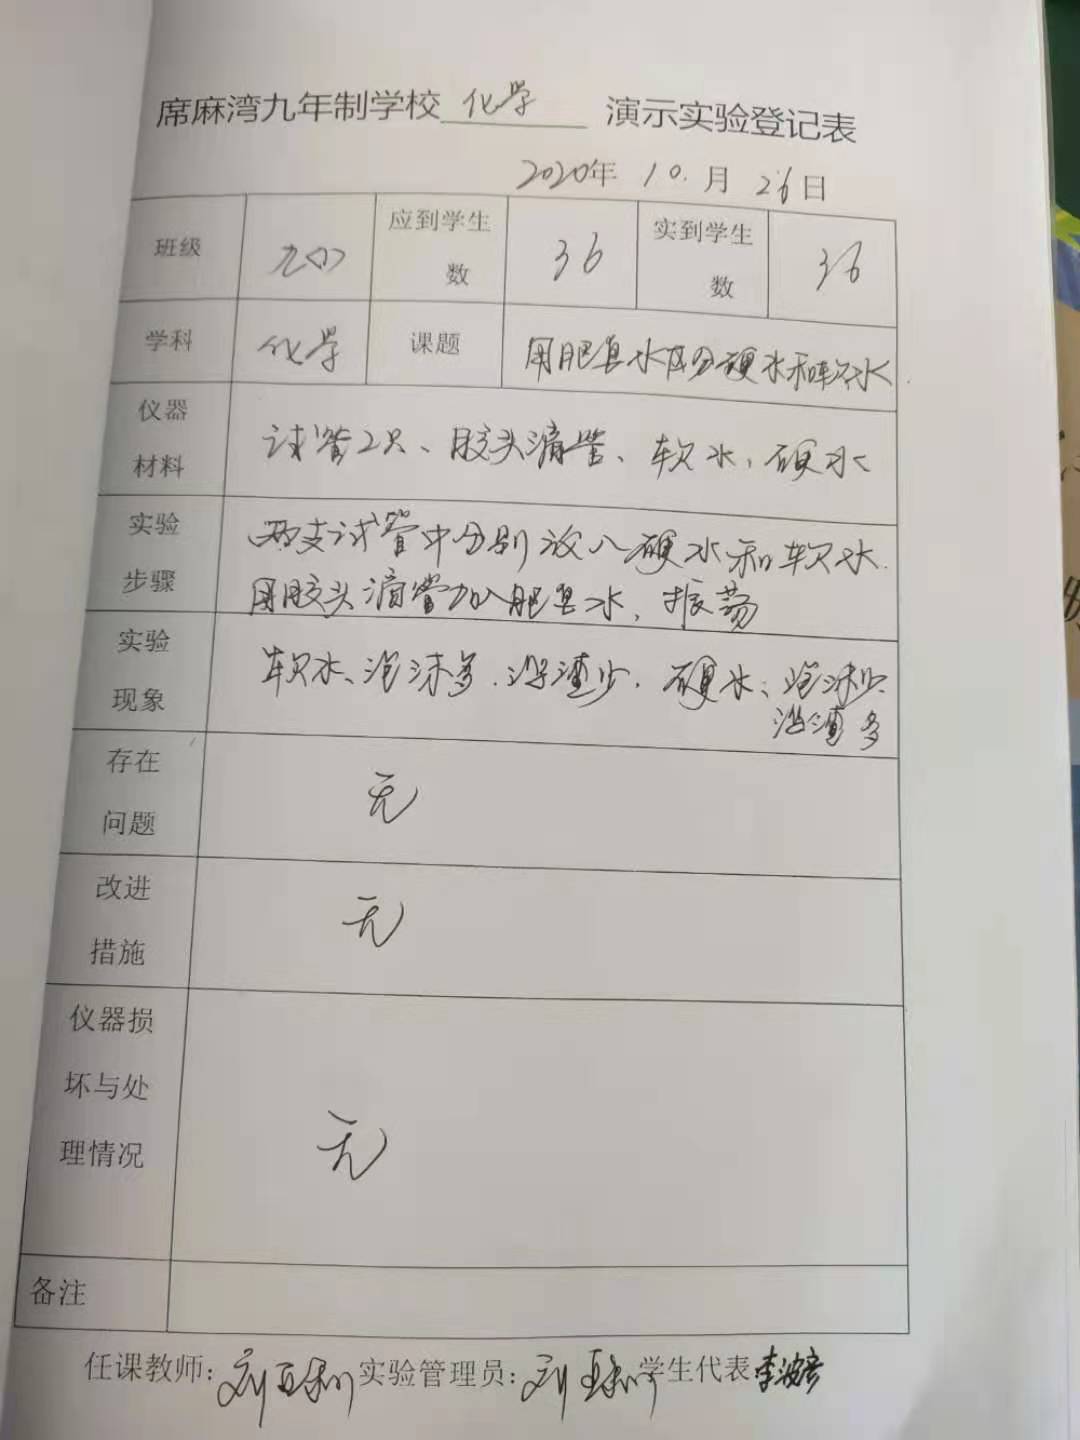 席麻湾九年制学校 化学 演示实验登记表
2020年 10. 月 26日
班级 九(1) 应到学生数 36 实到学生数 36
学科 化学 课题 用肥皂水区分硬水和软水
仪器材料 试管2只、胶头滴管、软水、硬水
实验步骤 两支试管中分别放入硬水和软水.
用胶头滴管加入肥皂水,振荡
实验现象 软水、泡沫多.浮渣少.硬水、泡沫少
浮渣多
存在问题 无
改进措施 无
仪器损坏与处理情况 无
备注
任课教师: 实验管理员: 学生代表 李波彦